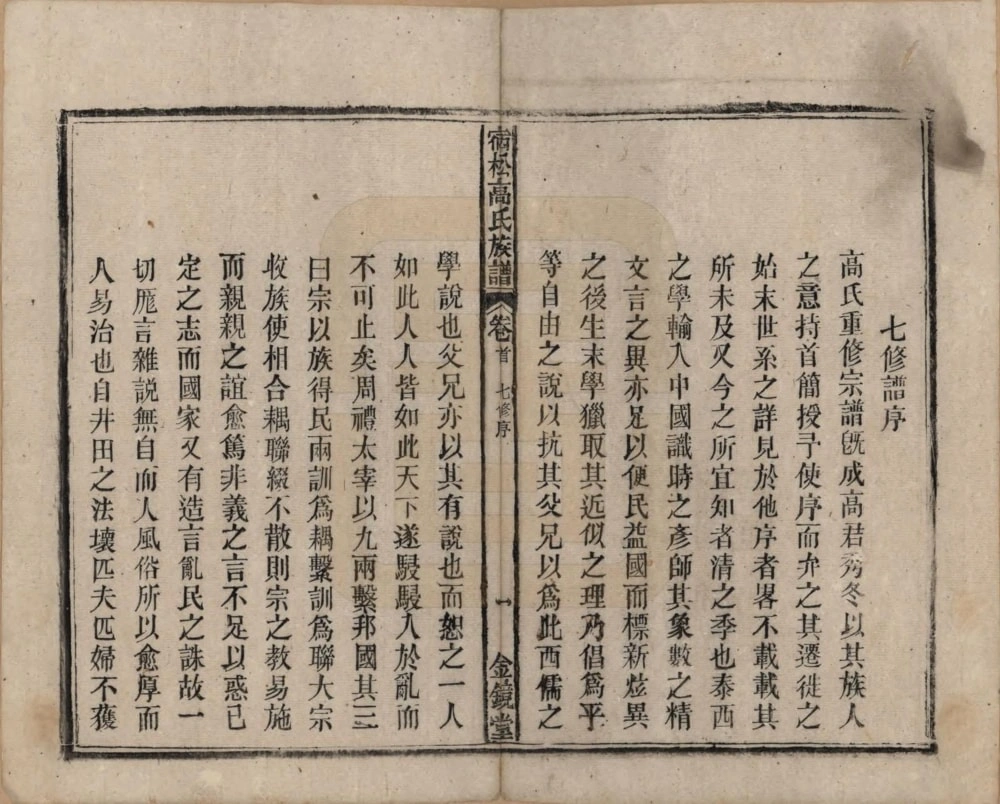 七修譜序
高氏重修宗譜旣成高君秀冬以其族人
之意持首簡授予使序而弁之其遷徙之
始末世系之詳見於他序者畧不載載其
所未及又今之所宜知者清之季也泰西
之學輸入中國識時之彥師其象數之精
文言之異亦足以便民益國而標新炫異
之後生末學獵取其近似之理乃倡爲平
等自由之說以抗其父兄以爲此西儒之
宿松高氏族譜 卷首 七修序 一 金鏡堂
學說也父兄亦以其有說也而恕之一人
如此人人皆如此天下遂駸駸入於亂而
不可止矣周禮太宰以九兩繫邦國其三
曰宗以族得民兩訓爲耦繫訓爲聯大宗
收族使相合耦聯綴不散則宗之教易施
而親親之誼愈篤非義之言不足以惑已
定之志而國家又有造言亂民之誅故一
切厖言雜說無自而入風俗所以愈厚而
人易治也自井田之法壞匹夫匹婦不獲